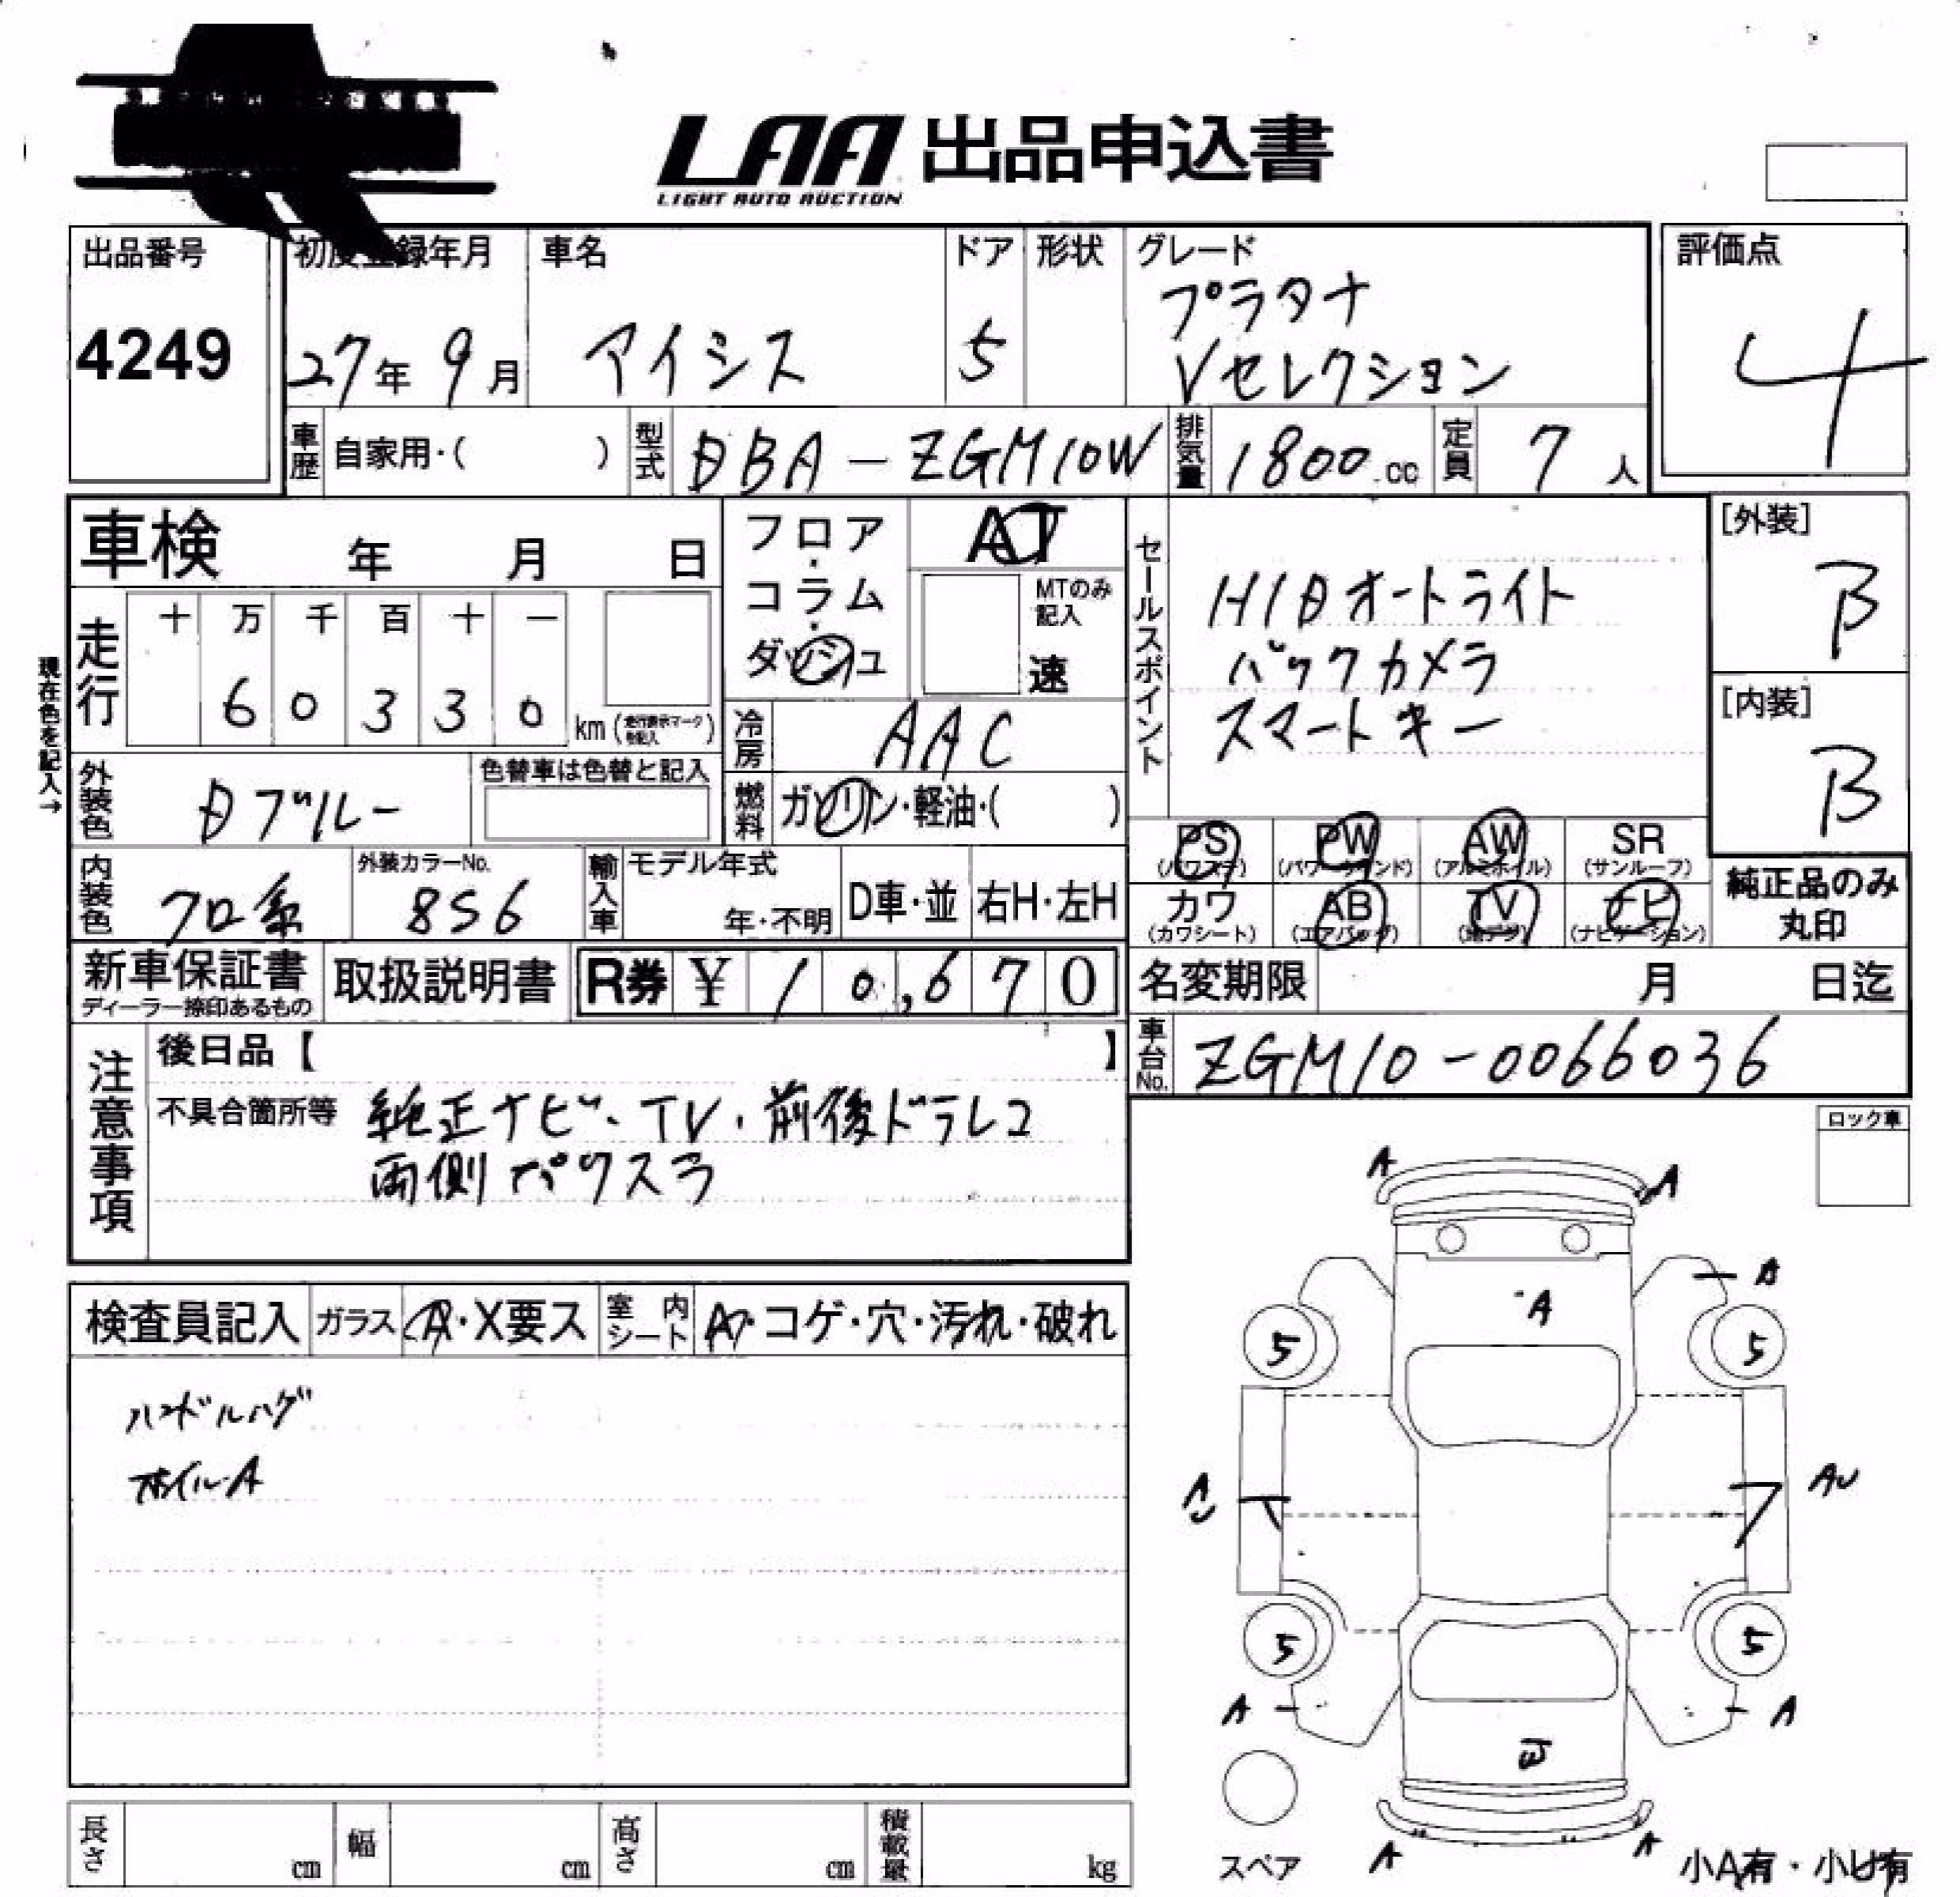 LAA 出品申込書
LIGHT AUTO AUCTION
出品番号
4249
初度登録年月
27年 9月
車名
アイシス
ドア
5
形状
グレード
プラタナ
Vセレクション
評価点
4
車歴 自家用・( )
型式 DBA-ZGM10W
排気量 1800.cc
定員 7人
車検 年 月 日
現在色を記入→
走行
十 万 千 百 十 一
6 0 3 3 0 km(走行表示マークを記入)
フロア・コラム・ダッシュ
AT
MTのみ記入
速
冷房 AAC
燃料 ガソリン・軽油・( )
セールスポイント
HIDオートライト
バックカメラ
スマートキー
[外装]
B
[内装]
B
外装色 Dブルー
色替車は色替と記入
内装色 クロ系
外装カラーNo.
8S6
輸入車
モデル年式
年・不明
D車・並
右H・左H
PS (パワステ)
PW (パワーウィンド)
AW (アルミホイル)
SR (サンルーフ)
カワ (カワシート)
AB (エアバッグ)
TV (地デジ)
ナビ (ナビゲーション)
純正品のみ
丸印
新車保証書
ディーラー捺印あるもの
取扱説明書
R券 ¥ 10,670
名変期限 月 日迄
車台No. ZGM10-0066036
注意事項
後日品【 】
不具合箇所等 純正ナビ・TV・前後ドラレコ
両側パワスラ
ロック車
検査員記入
ガラス A・X要ス
室内シート A・コゲ・穴・汚れ・破れ
ハンドルハゲ
ホイルA
A A
A
A
5 5
AU
5 5
A A
A A
スペア
小A有・小U有
長さ cm
幅 cm
高さ cm
積載量 kg